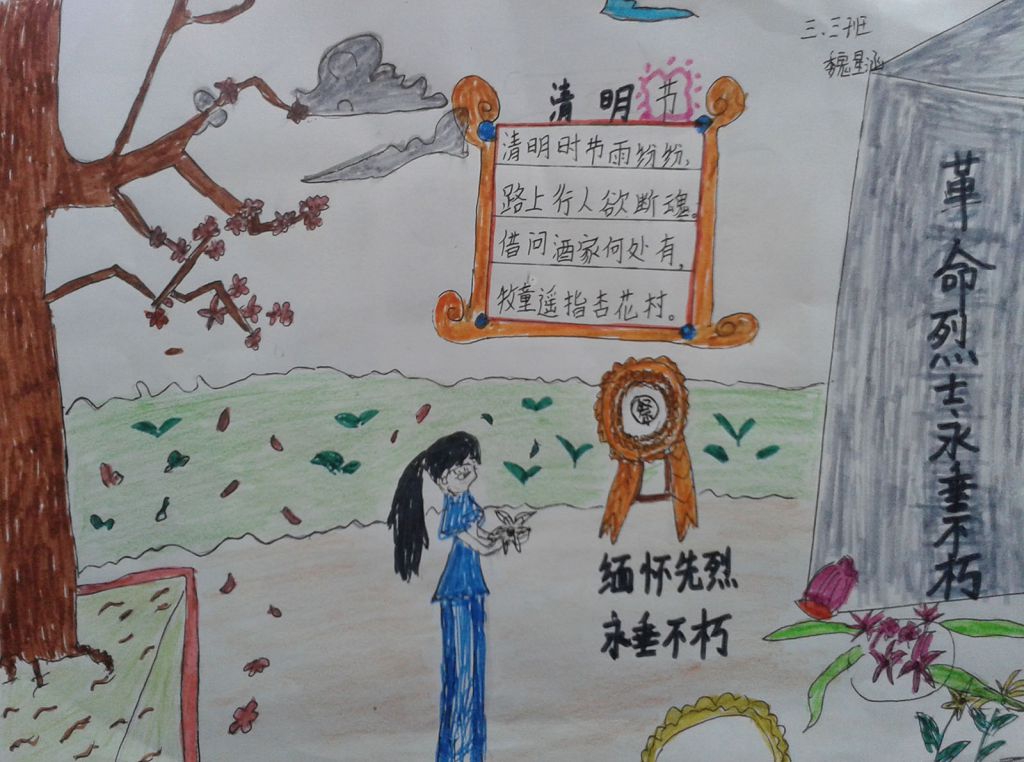 三.三班
魏星涵
清明节
清明时节雨纷纷,
路上行人欲断魂。
借问酒家何处有,
牧童遥指杏花村。
祭
缅怀先烈
永垂不朽
革命烈士永垂不朽